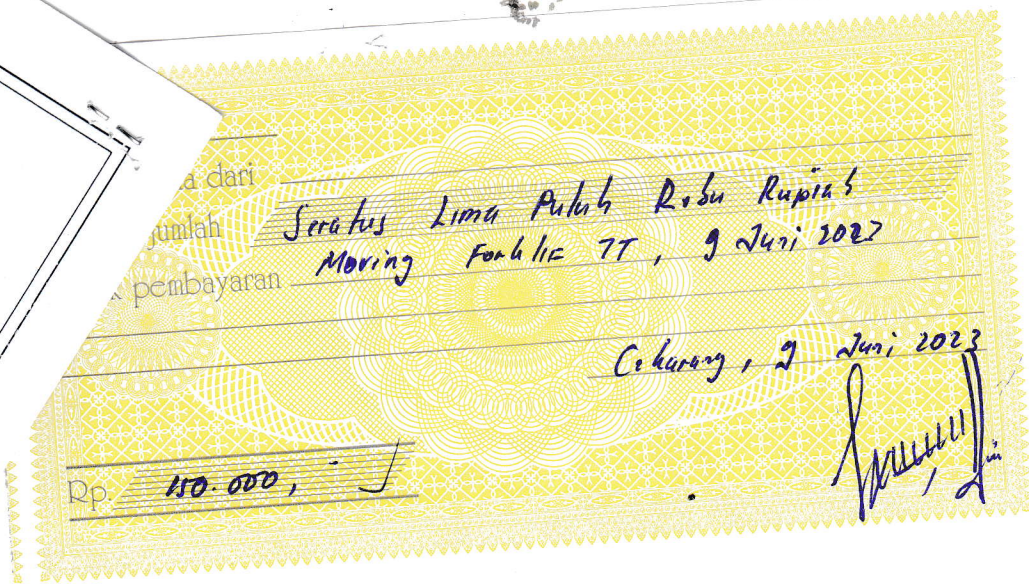 a dari
jumlah Seratus Lima Puluh Ribu Rupiah
pembayaran Moving Forklif 7T, 9 Juni 2023
Cikarang, 9 Juni 2023
Rp. 150.000,-